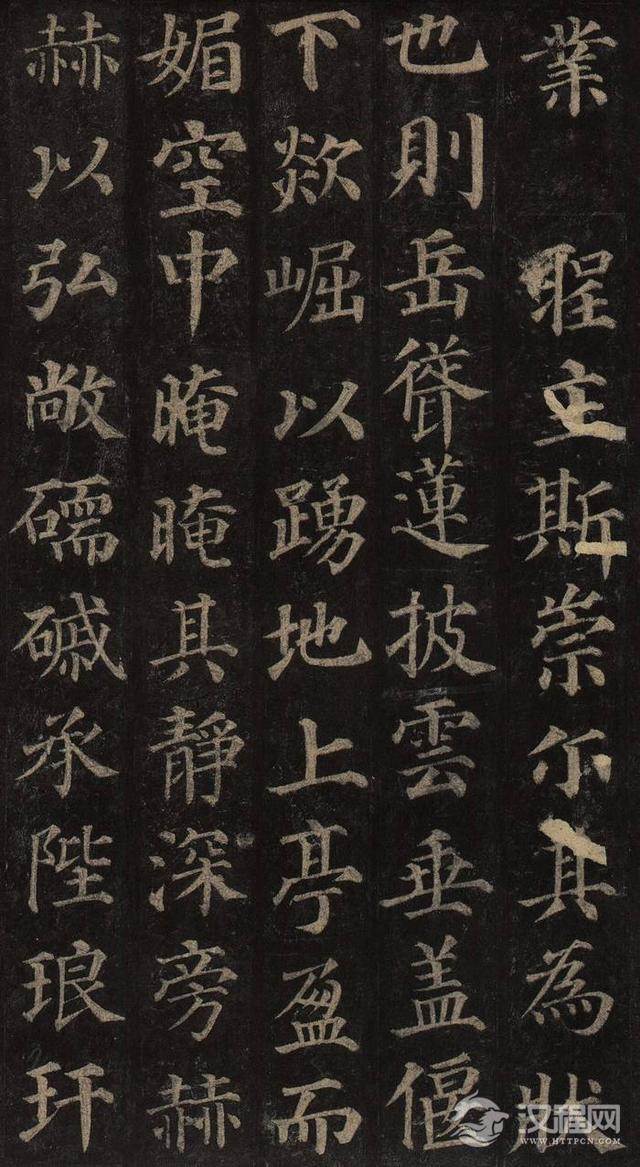 業 聖主斯崇尓其為狀
也則岳聳蓮披雲垂盖偃
下欻崛以踴地上亭盈而
媚空中晻晻其靜深旁赫
赫以弘敞礝磩承陛琅玕
汉程网
HTTPCN.COM